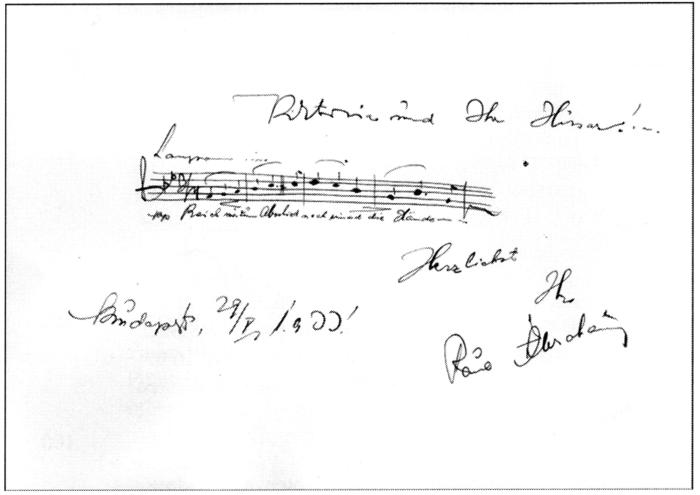 Viktoria und Ihr Husar!...
Langsam ...
pp Reich mir zum Abschied noch einmal die Hände ...
Herzlichst
Ihr
Budapest, 29/V 1933!
Paul Abraham